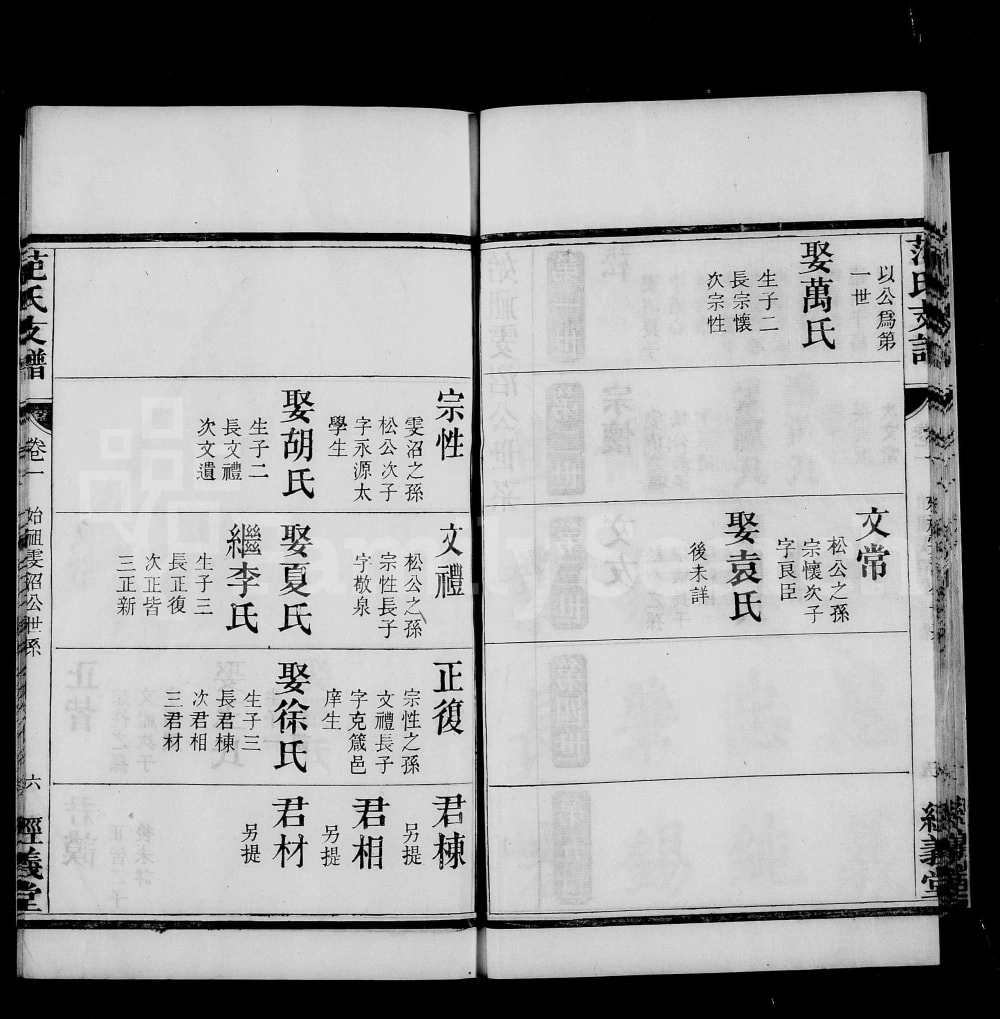 以公爲第
一世
娶萬氏
生子二
長宗懷
次宗性
文常
松公之孫
宗懷次子
字良臣
娶袁氏
後未詳
宗性
雯沼之孫
松公次子
字永源太
學生
娶胡氏
生子二
長文禮
次文遺
文禮
松公之孫
宗性長子
字敬泉
娶夏氏
繼李氏
生子三
長正復
次正皆
三正新
正復
宗性之孫
文禮長子
字克箴邑
庠生
娶徐氏
生子三
長君棟
次君相
三君材
君棟
另提
君相
另提
君材
另提
范氏支譜
卷一
始祖雯沼公世系
六
經義堂